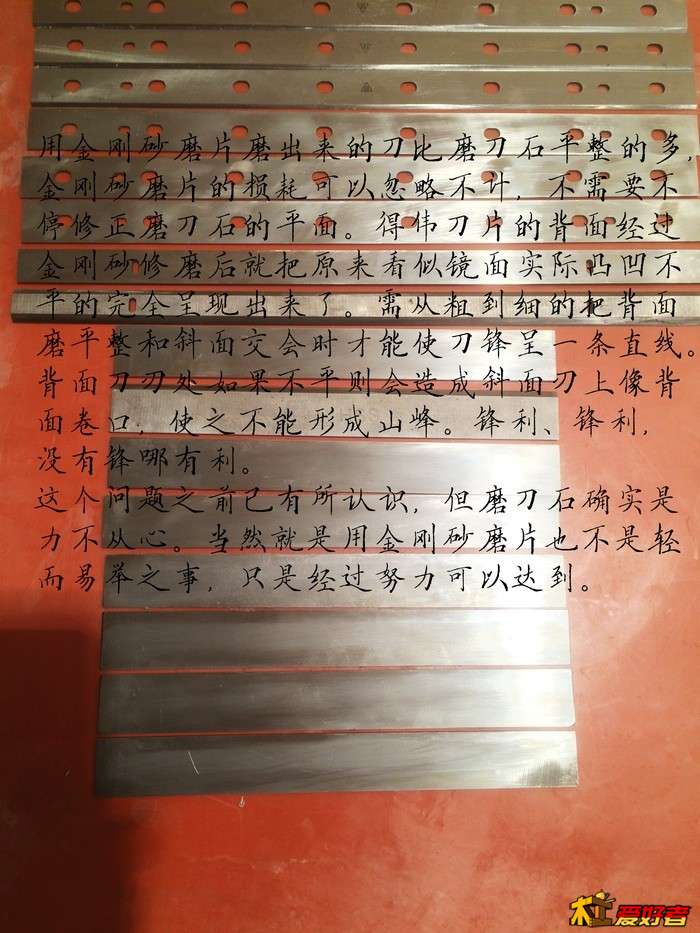 用金刚砂磨片磨出来的刀比磨刀石平整的多，
金刚砂磨片的损耗可以忽略不计，不需要不
停修正磨刀石的平面。得伟刀片的背面经过
金刚砂修磨后就把原来看似镜面实际凸凹不
平的完全呈现出来了。需从粗到细的把背面
磨平整和斜面交会时才能使刀锋呈一条直线。
背面刀刃处如果不平则会造成斜面刃上像背
面卷口，使之不能形成山峰。锋利、锋利，
没有锋哪有利。
这个问题之前已有所认识，但磨刀石确实是
力不从心。当然就是用金刚砂磨片也不是轻
而易举之事，只是经过努力可以达到。
木工爱好者